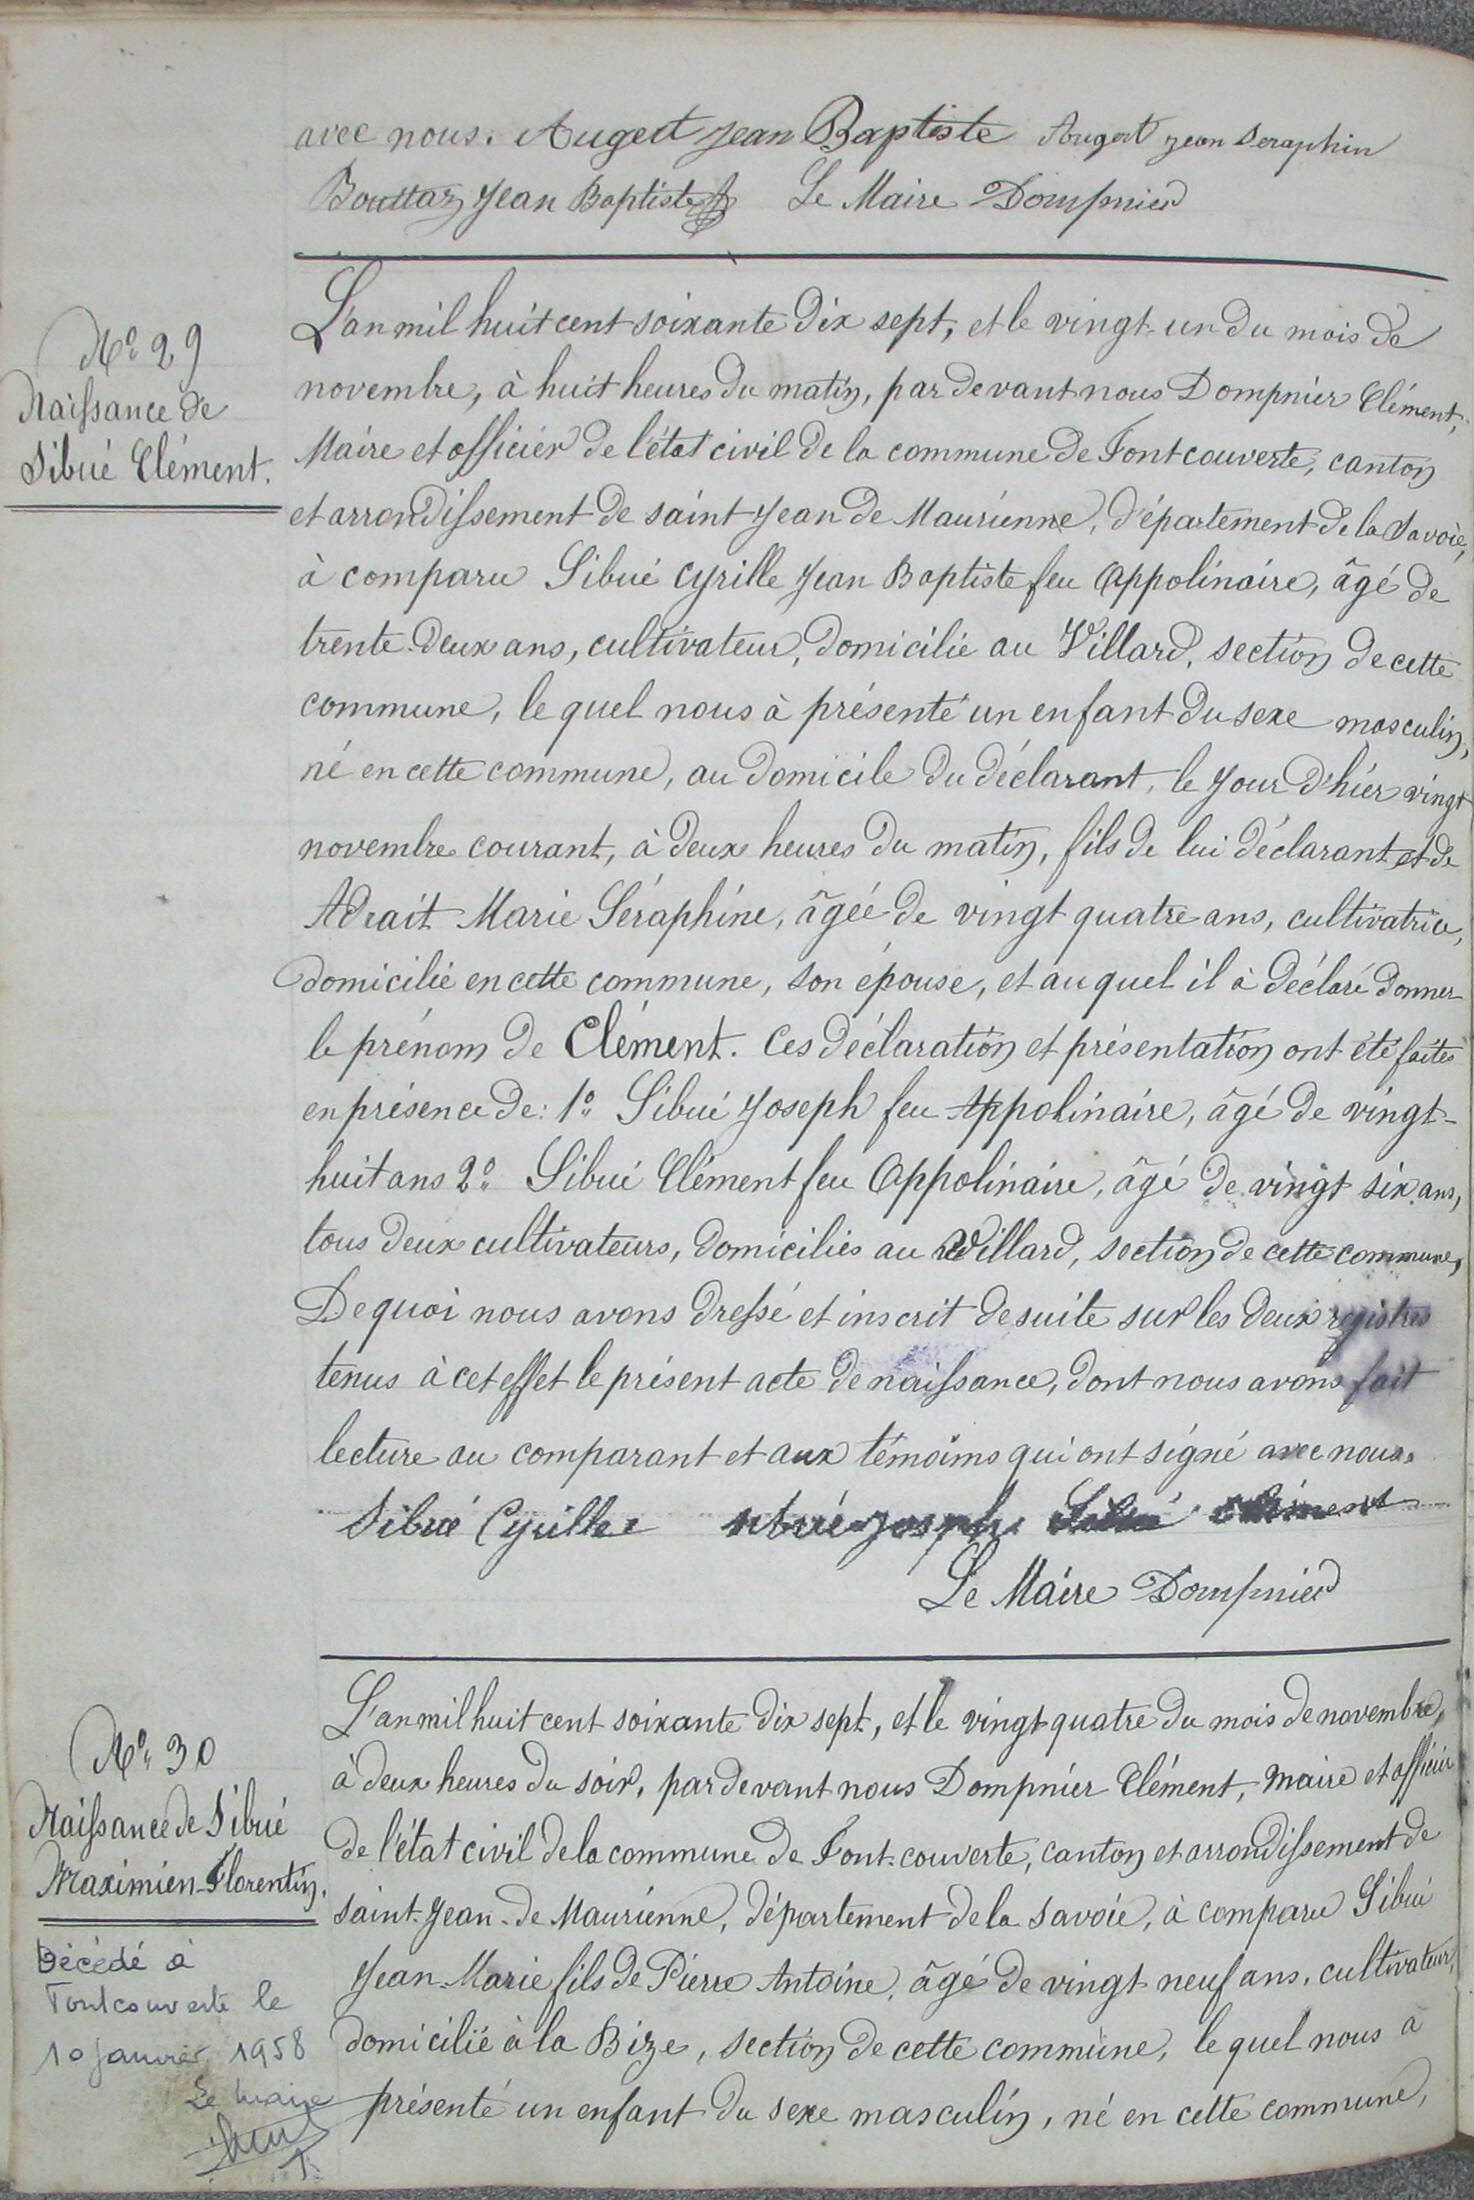 avec nous. Augert Jean Baptiste Augert jean Seraphin
Bouttaz Jean Baptiste Le Maire Dompnier
N° 29
Naissance de
Sibué Clément.
L'an mil huit cent soixante dix sept, et le vingt-un du mois de
novembre, à huit heures du matin, par devant nous Dompnier Clément,
Maire et officier de l'état civil de la commune de Fontcouverte, canton
et arrondissement de saint Jean de Maurienne, département de la Savoie,
à comparu Sibué Cyrille Jean Baptiste feu Appolinaire, âgé de
trente-deux ans, cultivateur, domicilié au Villard, section de cette
commune, le quel nous à présenté un enfant du sexe masculin,
né en cette commune, au domicile du déclarant, le jour d'hier vingt
novembre courant, à deux heures du matin, fils de lui déclarant et de
Adrait Marie Séraphine, âgée de vingt quatre ans, cultivatrice,
domicilié en cette commune, son épouse, et au quel il à déclaré donner
le prénom de Clément. Ces déclaration et présentation ont été faites
en présence de: 1° Sibué Joseph feu Appolinaire, âgé de vingt-
huit ans 2° Sibué Clément feu Appolinaire, âgé de vingt six ans,
tous deux cultivateurs, domiciliés au Villard, section de cette commune,
De quoi nous avons dressé et inscrit de suite sur les deux registres
tenus à cet effet le présent acte de naissance, dont nous avons fait
lecture au comparant et aux témoins qui ont signé avec nous.
Sibué Cyrille sibué joseph Sibué Clément
Le Maire Dompnier
N° 30
Naissance de Sibué
Maximien-Florentin.
Décédé à
Fontcouverte le
10 janvier 1958
Le maire
L'an mil huit cent soixante dix sept, et le vingt quatre du mois de novembre,
à deux heures du soir, par devant nous Dompnier Clément, maire et officier
de l'état civil de la commune de Font-couverte, canton et arrondissement de
saint-Jean-de Maurienne, département de la Savoie, à comparu Sibué
Jean-Marie fils de Pierre Antoine, âgé de vingt neuf ans, cultivateur,
domicilié à la Bize, section de cette commune, le quel nous à
présenté un enfant du sexe masculin, né en cette commune,